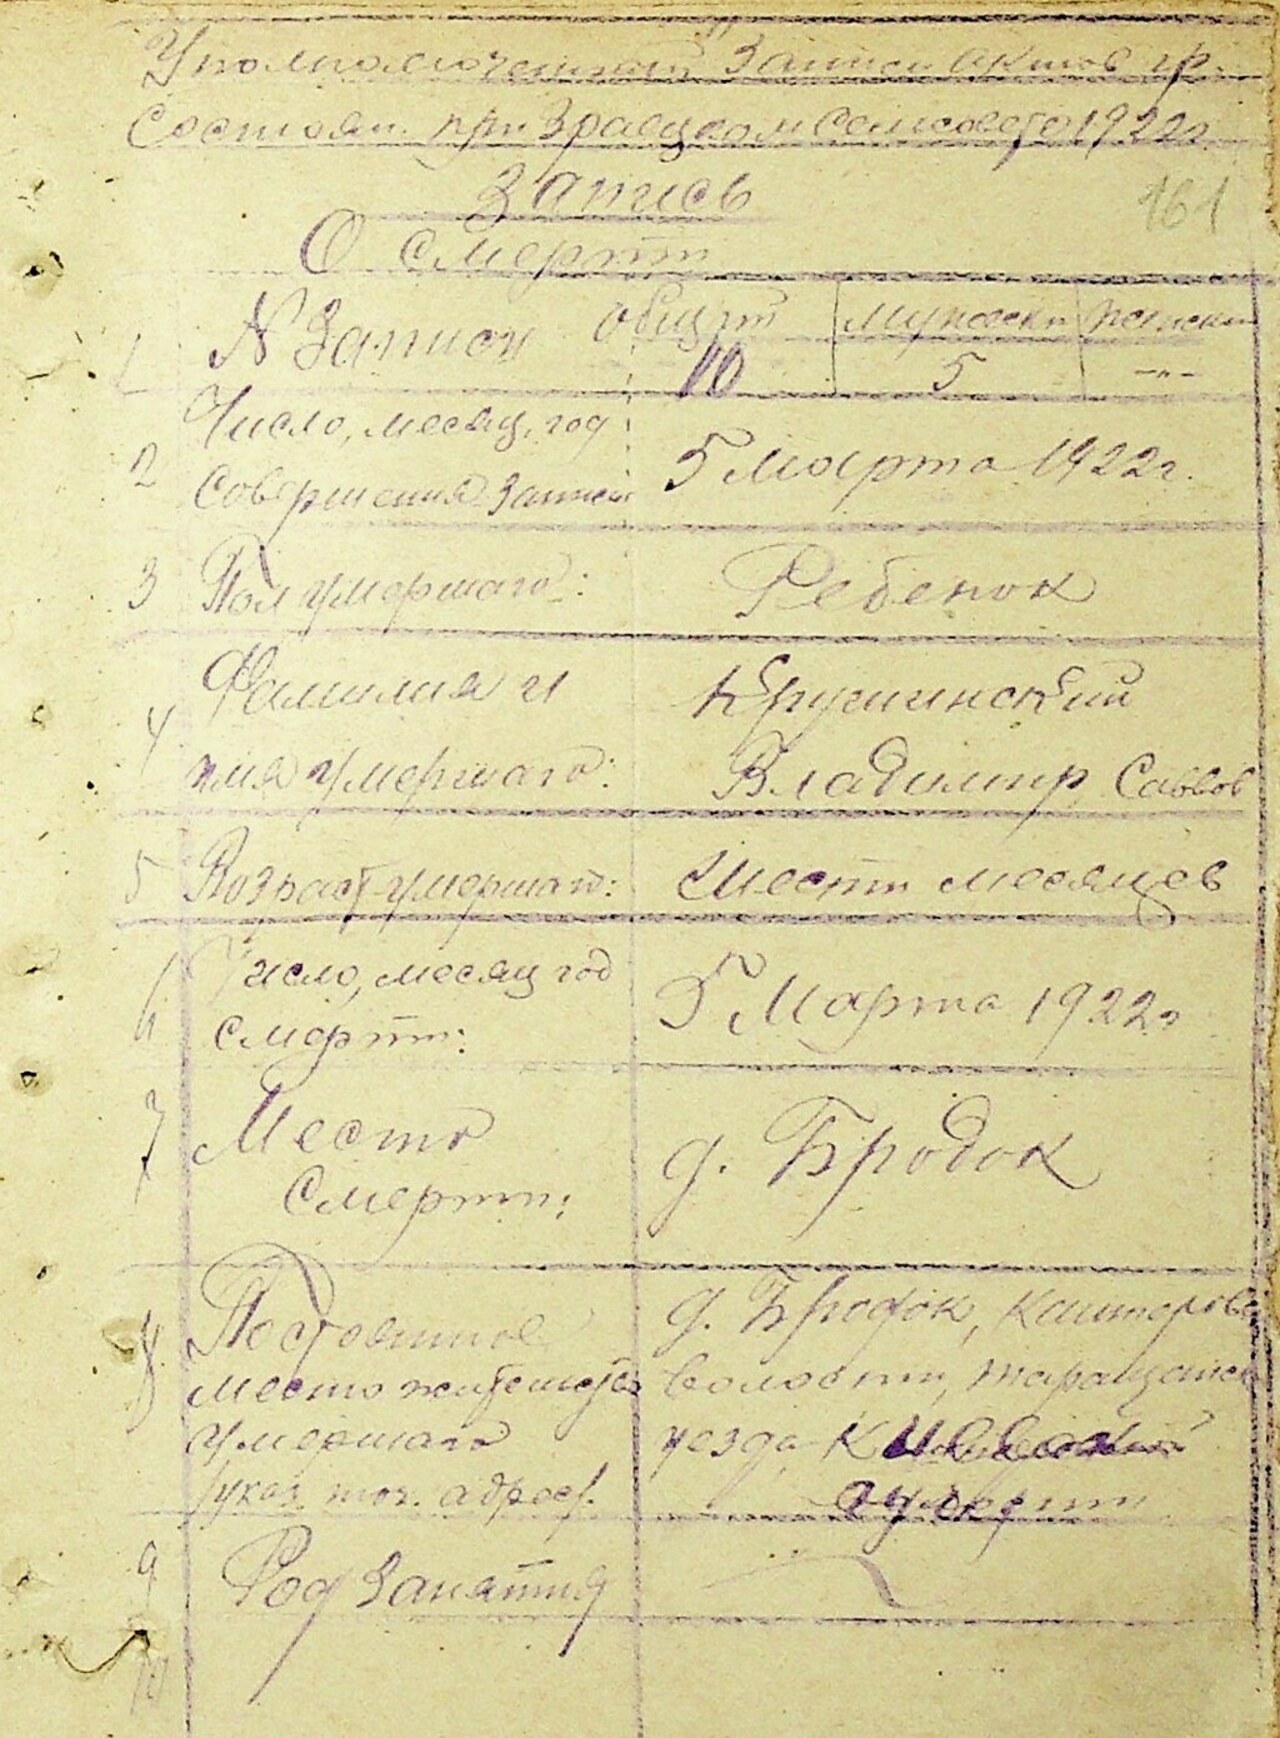 Уполномоченный Записи актов гр.
Состоян. при Сельсовете 1922г.
161
Запись
О смерти
1 N Записи общий мужски женски
10 5 -"-
2 Число, месяц, год
Совершения записи 5 Марта 1922г.
3 Пол умершаго: Ребенок
4 Фамилия и Крушинский
имя умершаго: Владимир Саввов
5 Возраст умершаго: Шести месяцев
6 Число, месяц год
смерти: 5 Марта 1922г
7 Место
Смерти: д. Бродок
8 Постоянное д. Бродок,
место жительства волости, Таращанск
умершаго уезда Киевской
/указ. точ. адрес/. губерни
9 Род Занятия
10